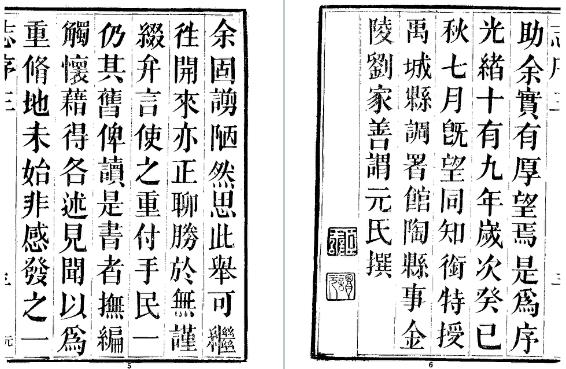 余固謭陋然思此舉可繼
徃開來亦正聊勝於無謹
綴弁言使之重付手民一
仍其舊俾讀是書者撫編
觸懷藉得各述見聞以爲
重脩地未始非感發之一
志序三
三
5
助余實有厚望焉是爲序
光緒十有九年歲次癸巳
秋七月旣望同知銜特授
禹城縣調署館陶縣事金
陵劉家善謂元氏撰
6